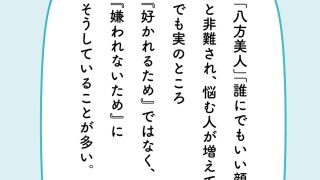 「八方美人」「誰にでもいい顔
と非難され、悩む人が増えて
でも実のところ
『好かれるため』ではなく、
『嫌われないため』に
そうしていることが多い。